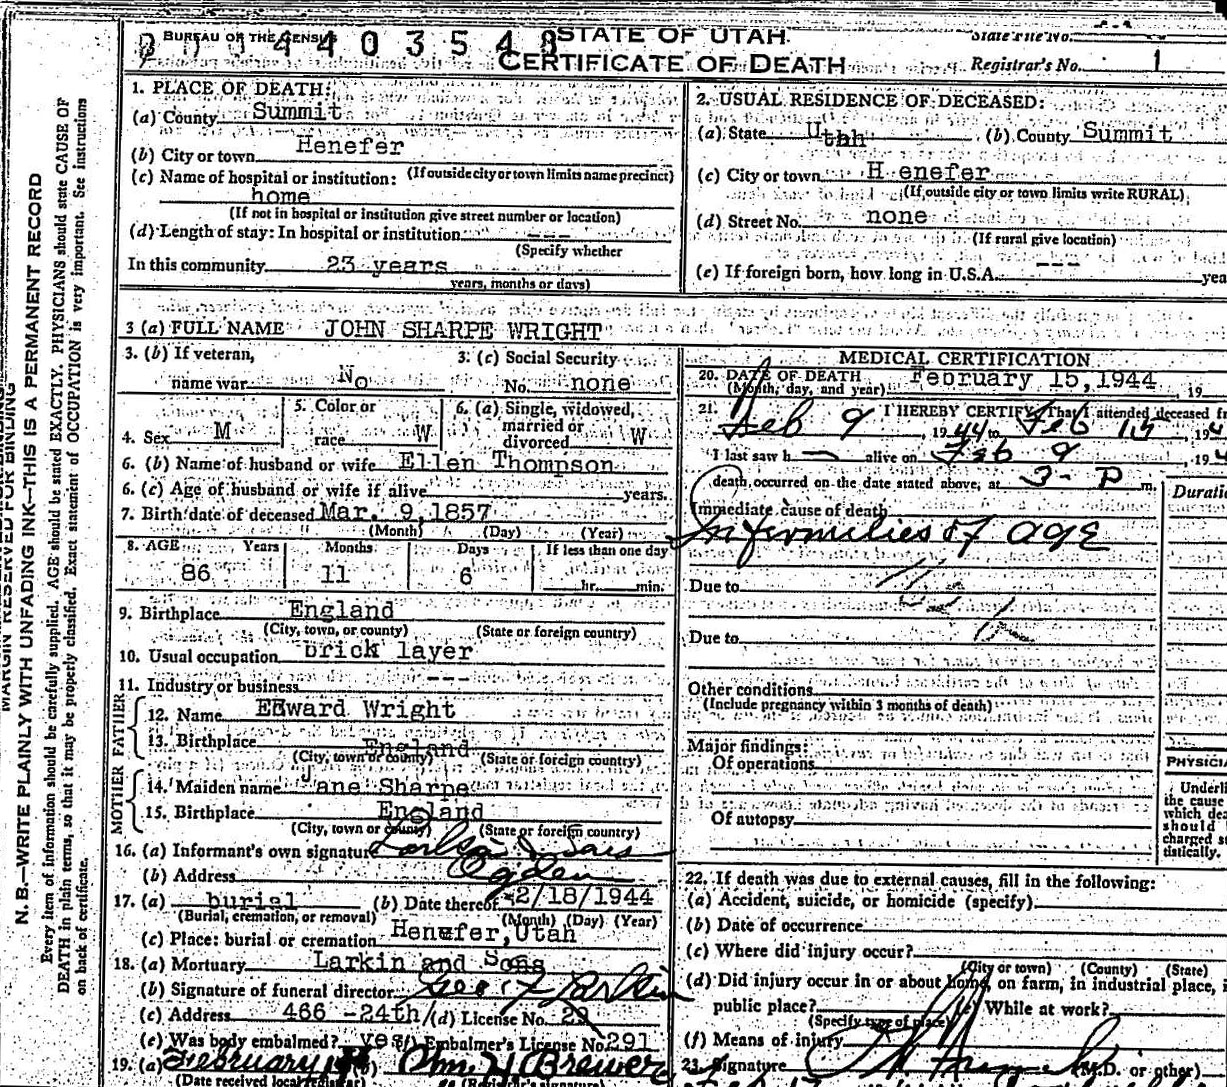 BUREAU OF THE CENSUS
STATE OF UTAH
CERTIFICATE OF DEATH
State File No.
Registrar's No. 1
MARGIN RESERVED FOR BINDING
N. B.—WRITE PLAINLY WITH UNFADING INK—THIS IS A PERMANENT RECORD
Every item of information should be carefully supplied. AGE should be stated EXACTLY. PHYSICIANS should state CAUSE OF
DEATH in plain terms, so that it may be properly classified. Exact statement of OCCUPATION is very important. See instructions
on back of certificate.
1. PLACE OF DEATH:
(a) County Summit
(b) City or town Henefer
(If outside city or town limits name precinct)
(c) Name of hospital or institution:
home
(If not in hospital or institution give street number or location)
(d) Length of stay: In hospital or institution ---
(Specify whether
In this community 23 years
years, months or days)
2. USUAL RESIDENCE OF DECEASED:
(a) State Utah (b) County Summit
(c) City or town H enefer
(If outside city or town limits write RURAL)
(d) Street No. none
(If rural give location)
(e) If foreign born, how long in U.S.A. --- yea
3 (a) FULL NAME JOHN SHARPE WRIGHT
3. (b) If veteran,
name war No
3. (c) Social Security
No. none
4. Sex M
5. Color or
race W
6. (a) Single, widowed,
married or
divorced W
6. (b) Name of husband or wife Ellen Thompson
6. (c) Age of husband or wife if alive years.
7. Birth date of deceased Mar. 9, 1857
(Month) (Day) (Year)
8. AGE Years Months Days If less than one day
86 11 6 hr. min.
9. Birthplace England
(City, town, or county) (State or foreign country)
10. Usual occupation brick layer
11. Industry or business ---
FATHER
12. Name Edward Wright
13. Birthplace England
(City, town or county) (State or foreign country)
MOTHER
14. Maiden name Jane Sharpe
15. Birthplace England
(City, town or county) (State or foreign country)
16. (a) Informant's own signature
(b) Address Ogden
17. (a) burial (b) Date thereof 2/18/1944
(Burial, cremation, or removal) (Month) (Day) (Year)
(c) Place: burial or cremation Henefer, Utah
18. (a) Mortuary Larkin and Sons
(b) Signature of funeral director Geo F Larkin
(c) Address 466 -24th (d) License No.
(e) Was body embalmed? yes (f) Embalmer's License No. 291
19. (a) February (b) Wm. H Brewer
(Date received local registrar) (Registrar's signature)
MEDICAL CERTIFICATION
20. DATE OF DEATH February 15, 1944, 19
(Month, day, and year)
21. I HEREBY CERTIFY, That I attended deceased fr
Feb 9, 1944 to Feb 15, 194
I last saw h alive on Feb 9, 194
death occurred on the date stated above, at 3- P m.
Duratio
Immediate cause of death
Infirmities of age
Due to
Due to
Other conditions
(Include pregnancy within 3 months of death)
Major findings:
Of operations
Of autopsy
PHYSICIA
Underli
the cause
which dea
should
charged st
tistically.
22. If death was due to external causes, fill in the following:
(a) Accident, suicide, or homicide (specify)
(b) Date of occurrence
(c) Where did injury occur?
(City or town) (County) (State)
(d) Did injury occur in or about home, on farm, in industrial place, i
public place? (e) While at work?
(Specify type of place)
(f) Means of injury
23. Signature (M.D. or other)